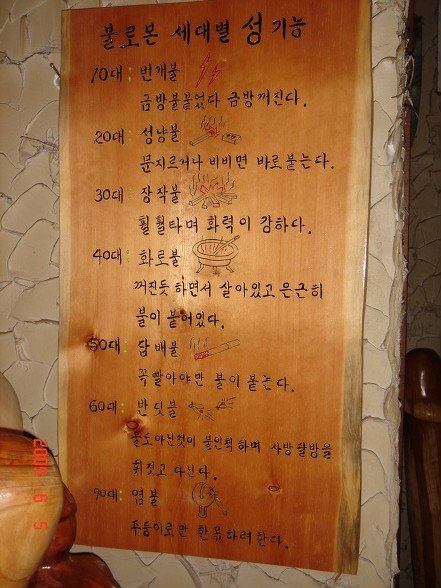 불로본 세대별 성기능
10대: 번개불
금방불붙었다 금방꺼진다.
20대 성냥불
문지르거나 비비면 바로붙는다.
30대 장작불
훨훨타며 화력이 강하다.
40대: 화로불
꺼진듯 하면서 살아있고은근히
불이 붙어있다.
50대: 담배불
꼭빨아야만 불이 붙는다.
60대: 반딧불
불도아닌것이 불인척하며 사방팔방을
휘젓고 다닌다.
70대: 염불
주둥이로만 한몫하려한다.
2009 6 5